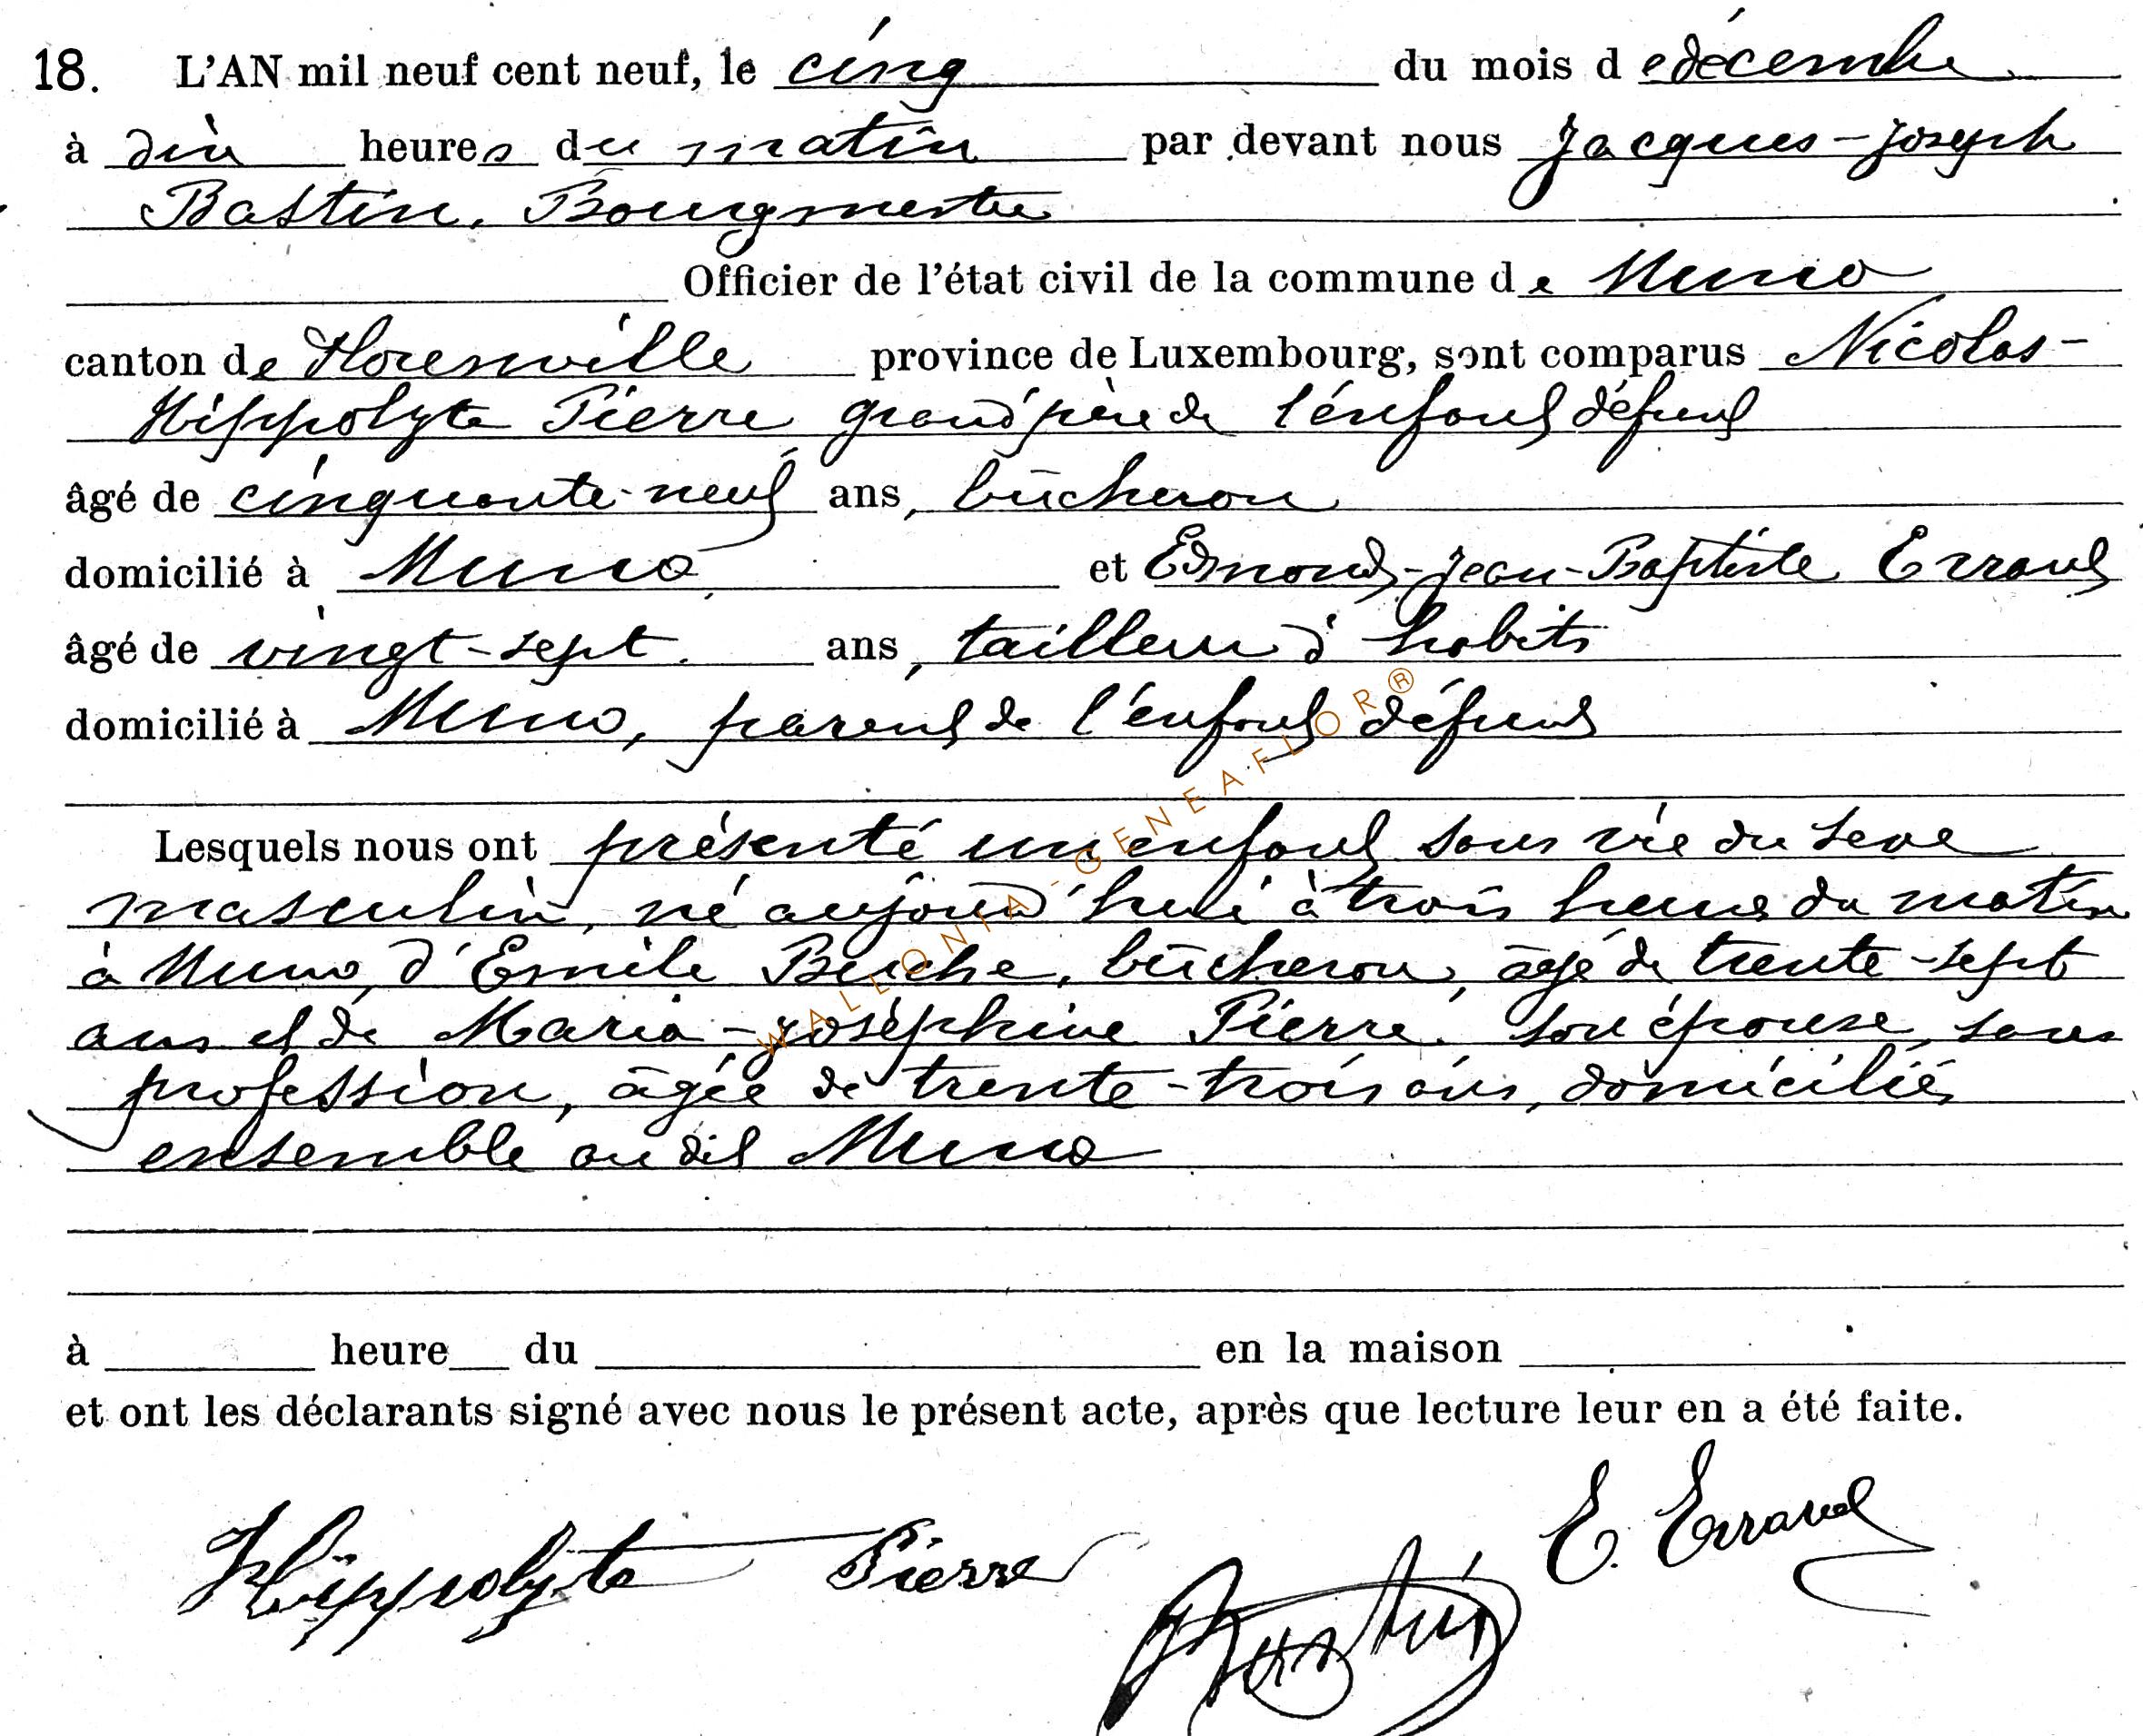 18. L'AN mil neuf cent neuf, le cinq du mois de décembre
à dix heures du matin par devant nous Jacques-Joseph
Bastin, Bourgmestre
Officier de l'état civil de la commune de Muno
canton de Florenville province de Luxembourg, sont comparus Nicolas-
Hippolyte Pierre grand père de l'enfant défunt
âgé de cinquante-neuf ans, bûcheron
domicilié à Muno et Edmond-Jean-Baptiste Errard
âgé de vingt-sept ans, tailleur d'habits
domicilié à Muno, parent de l'enfant défunt
Lesquels nous ont présenté un enfant sans vie du sexe
masculin, né aujourd'hui à trois heures du matin
à Muno, d'Emile Buche, bûcheron, âgé de trente-sept
ans et de Maria-Joséphine Pierre, son épouse, sans
profession, âgée de trente-trois ans, domiciliés
ensemble au dit Muno
à heure du en la maison
et ont les déclarants signé avec nous le présent acte, après que lecture leur en a été faite.
Hippolyte Pierre
E. Errard
Bastin
WALLONIA-GENEAFLOR®